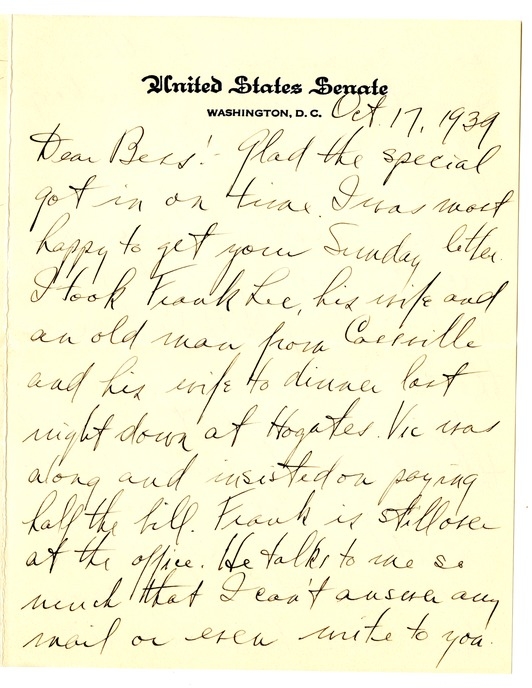 United States Senate
WASHINGTON, D. C.
Oct. 17, 1939
Dear Bess:- Glad the special
got in on time. I was most
happy to get your Sunday letter.
I took Frank Lee, his wife and
an old man from Cassville
and his wife to dinner last
night down at Hogates. Vic was
along and insisted on paying
half the bill. Frank is still over
at the office. He talks to me so
much that I can't answer any
mail or even write to you.